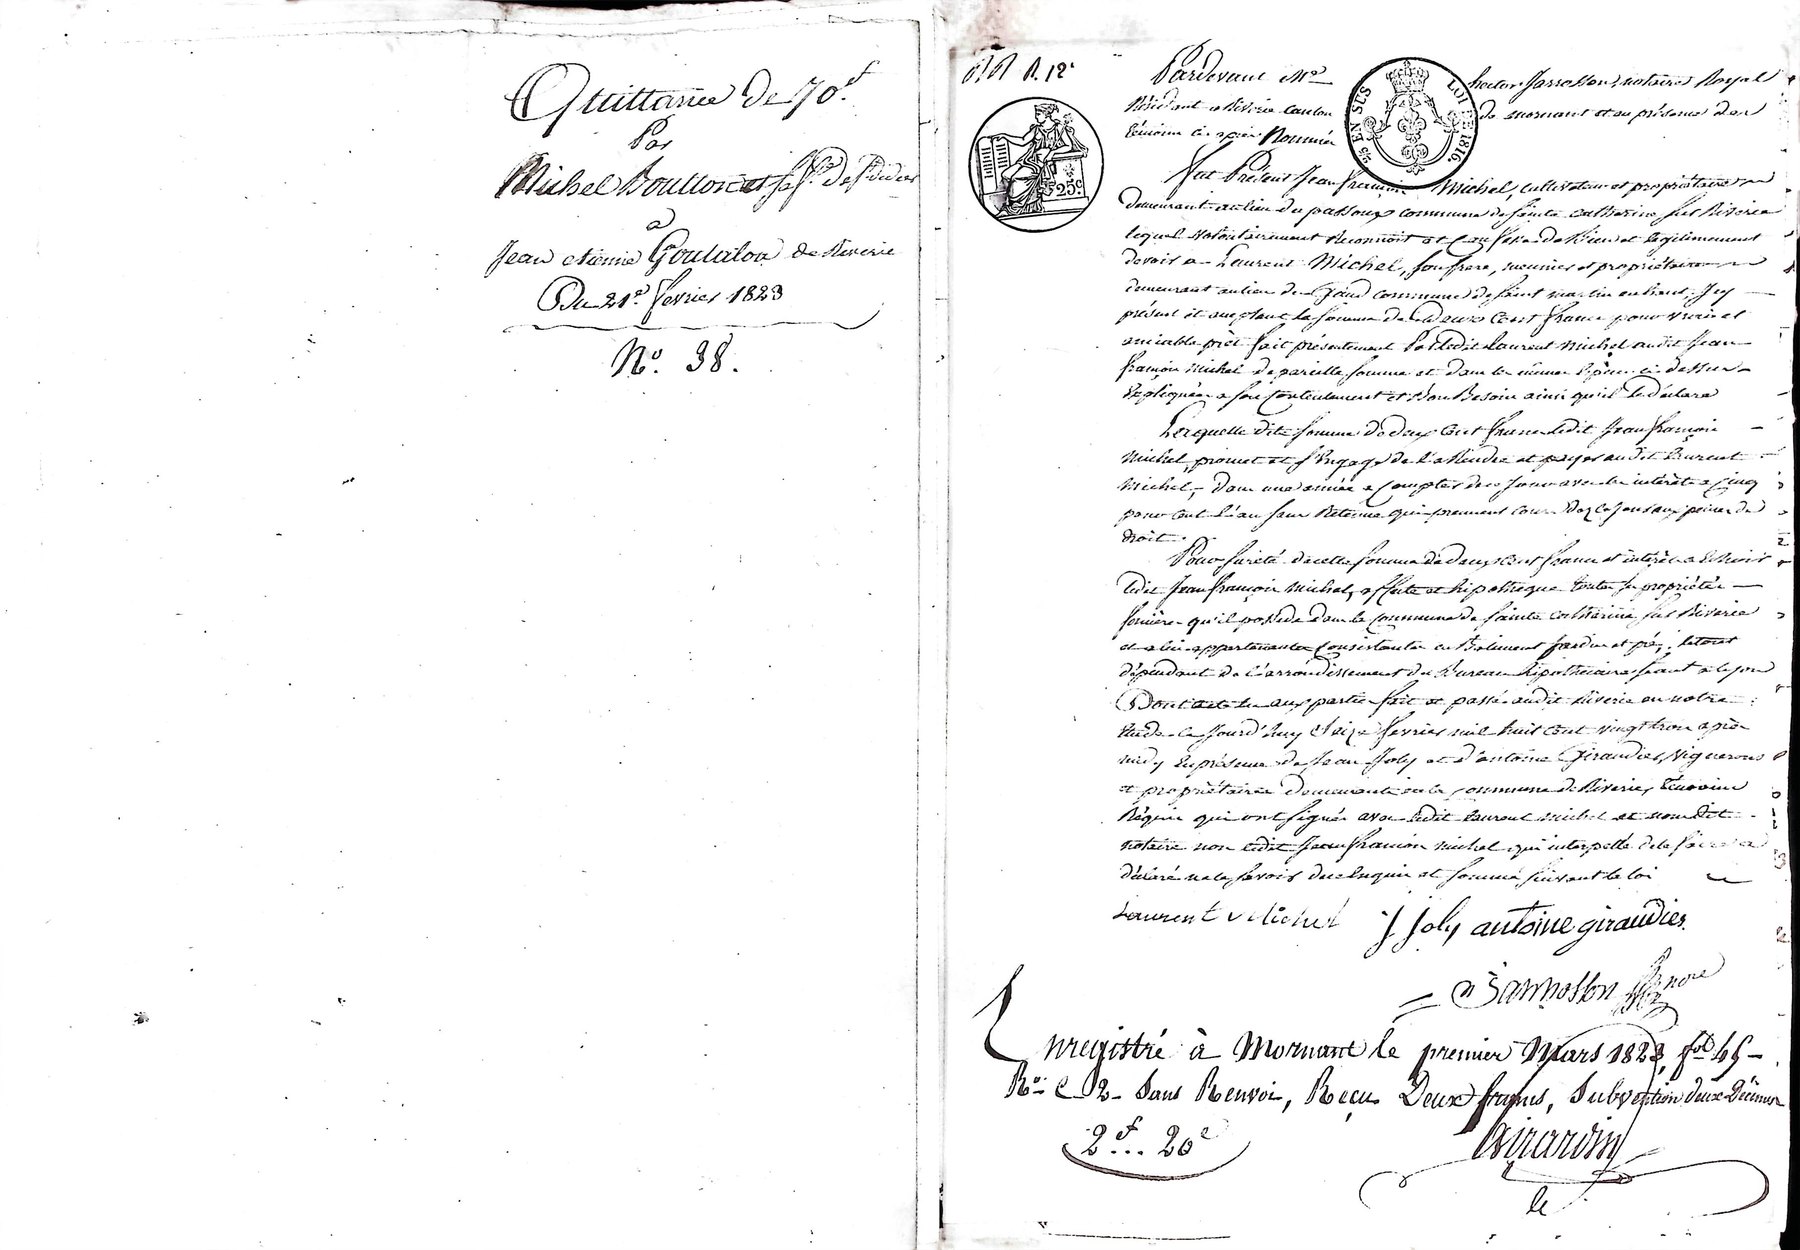 Quittance de 70.f
Par
Michel Boullon et sa f.e de St didier
a
Jean etienne Goutalon de Riverie
Du 21.e fevrier 1823
N.o 38.
R.12.
Pardevant Me hector Jarrosson notaire Royal
Résidant a Riverie canton de mornant et en présence des
témoins ci après Nommés
5/8 EN SUS LOI DE 1816
25c.
fut Présent Jean françois Michel, cultivateur et propriétaire
demeurant au lieu du passoux commune de sainte catherine sur Riverie
lequel volontairement Reconnoit et Confesse de Bien et légitimement
devoir a Laurent Michel, son frere, meunier et propriétaire
demeurant au lieu de commune de saint martin en haut, Icy
présent et acceptant la somme de Deux Cent francs pour vrai et
amiable prêt fait présentement Par ledit Laurent Michel audit Jean
françois Michel de pareille somme et dans les mêmes Espèces ci dessus
Expliquées a son Contentement et Bon Besoin ainsi qu'il le déclare
Laquelle dite somme de deux Cent francs ledit Jean françois
Michel, promet et s'engage de la Rendre et payer audit Laurent
Michel, dans une année a Compter de ce jour avec les intérêts a Cinq
pour Cent l'an sans Retenue qui prennent cours Dez ce jour aux peines de
droit.
Pour sureté de cette somme de deux Cent francs et intérêts a Echoir
ledit Jean françois Michel, affecte et hipotheque toutes ses propriétés
foncières qu'il possede dans la Commune de sainte catherine sur Riverie
et a lui appartenantes Consistantes en Batiment Jardin et pré, le tout
dépendant de l'arrondissement du Bureau hipothécaire séant a Lyon
Dont acte lu aux parties fait et passé audit Riverie en notre
Etude le Jourd'huy seize fevrier mil huit cent vingt trois après
midy En présence de Jean Joly et d'antoine Giraudier, Vignerons
et propriétaires demeurants en la Commune de Riverie, témoins
Réquis qui ont signés avec ledit Laurent Michel et nous dit
notaire non ledit Jean françois Michel qui interpellé de le faire a
déclaré ne le savoir de ce Enquis et sommé suivant la loi
Laurent Michel J Joly antoine giraudier
h Jarrosson nore
Enregistré à Mornant le premier Mars 1823, fol. 45
Ro. C. 2. Sans Renvoi, Reçu Deux francs, Subvention deux Décimes
2f... 20c Girardin
le